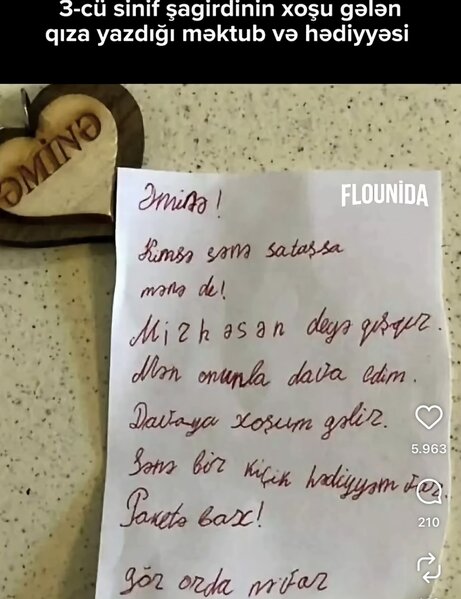 3-cü sinif şagirdinin xoşu gələn
qıza yazdığı məktub və hədiyyəsi
ƏMİNƏ
FLOUNİDA
Əminə!
Kimsə sənə sataşsa
mənə de!
Mirhəsən deyə qışqır.
Mən onunla dava edim.
Davaya xoşum gəlir.
Sənə bir kiçik hədiyyəm var.
Paketə bax!
Gör orda nə var
5.963
210